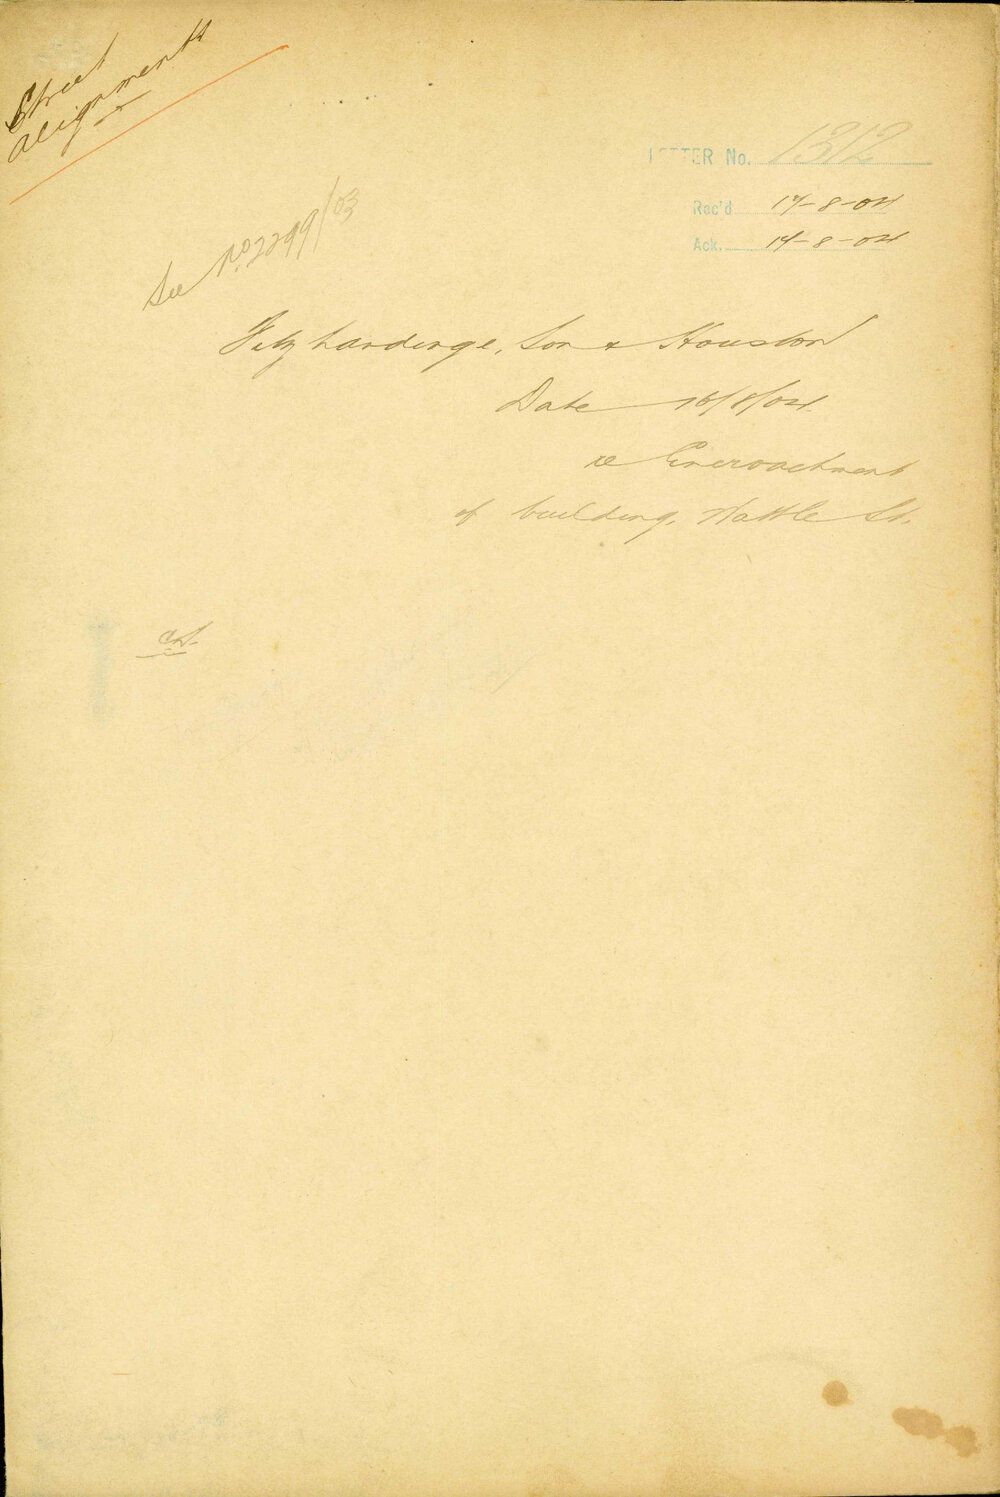 Street
alignments
LETTER No. 1312
Rec'd 17-8-04
Ack. 17-8-04
See No. 2299/03
Fitzhardinge, Son & Houston
Date 16/8/04
re Encroachment
of building, Wattle St.